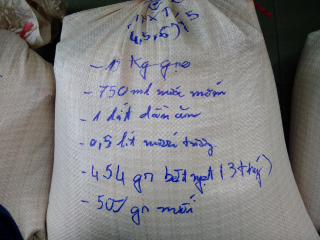 4,5,5)
- 11 Kg gạo
- 750 ml nước mắm
- 1 lít dầu ăn
- 0,5 lít nước tương
- 454 gr bột ngọt (3
- 500 gr muối